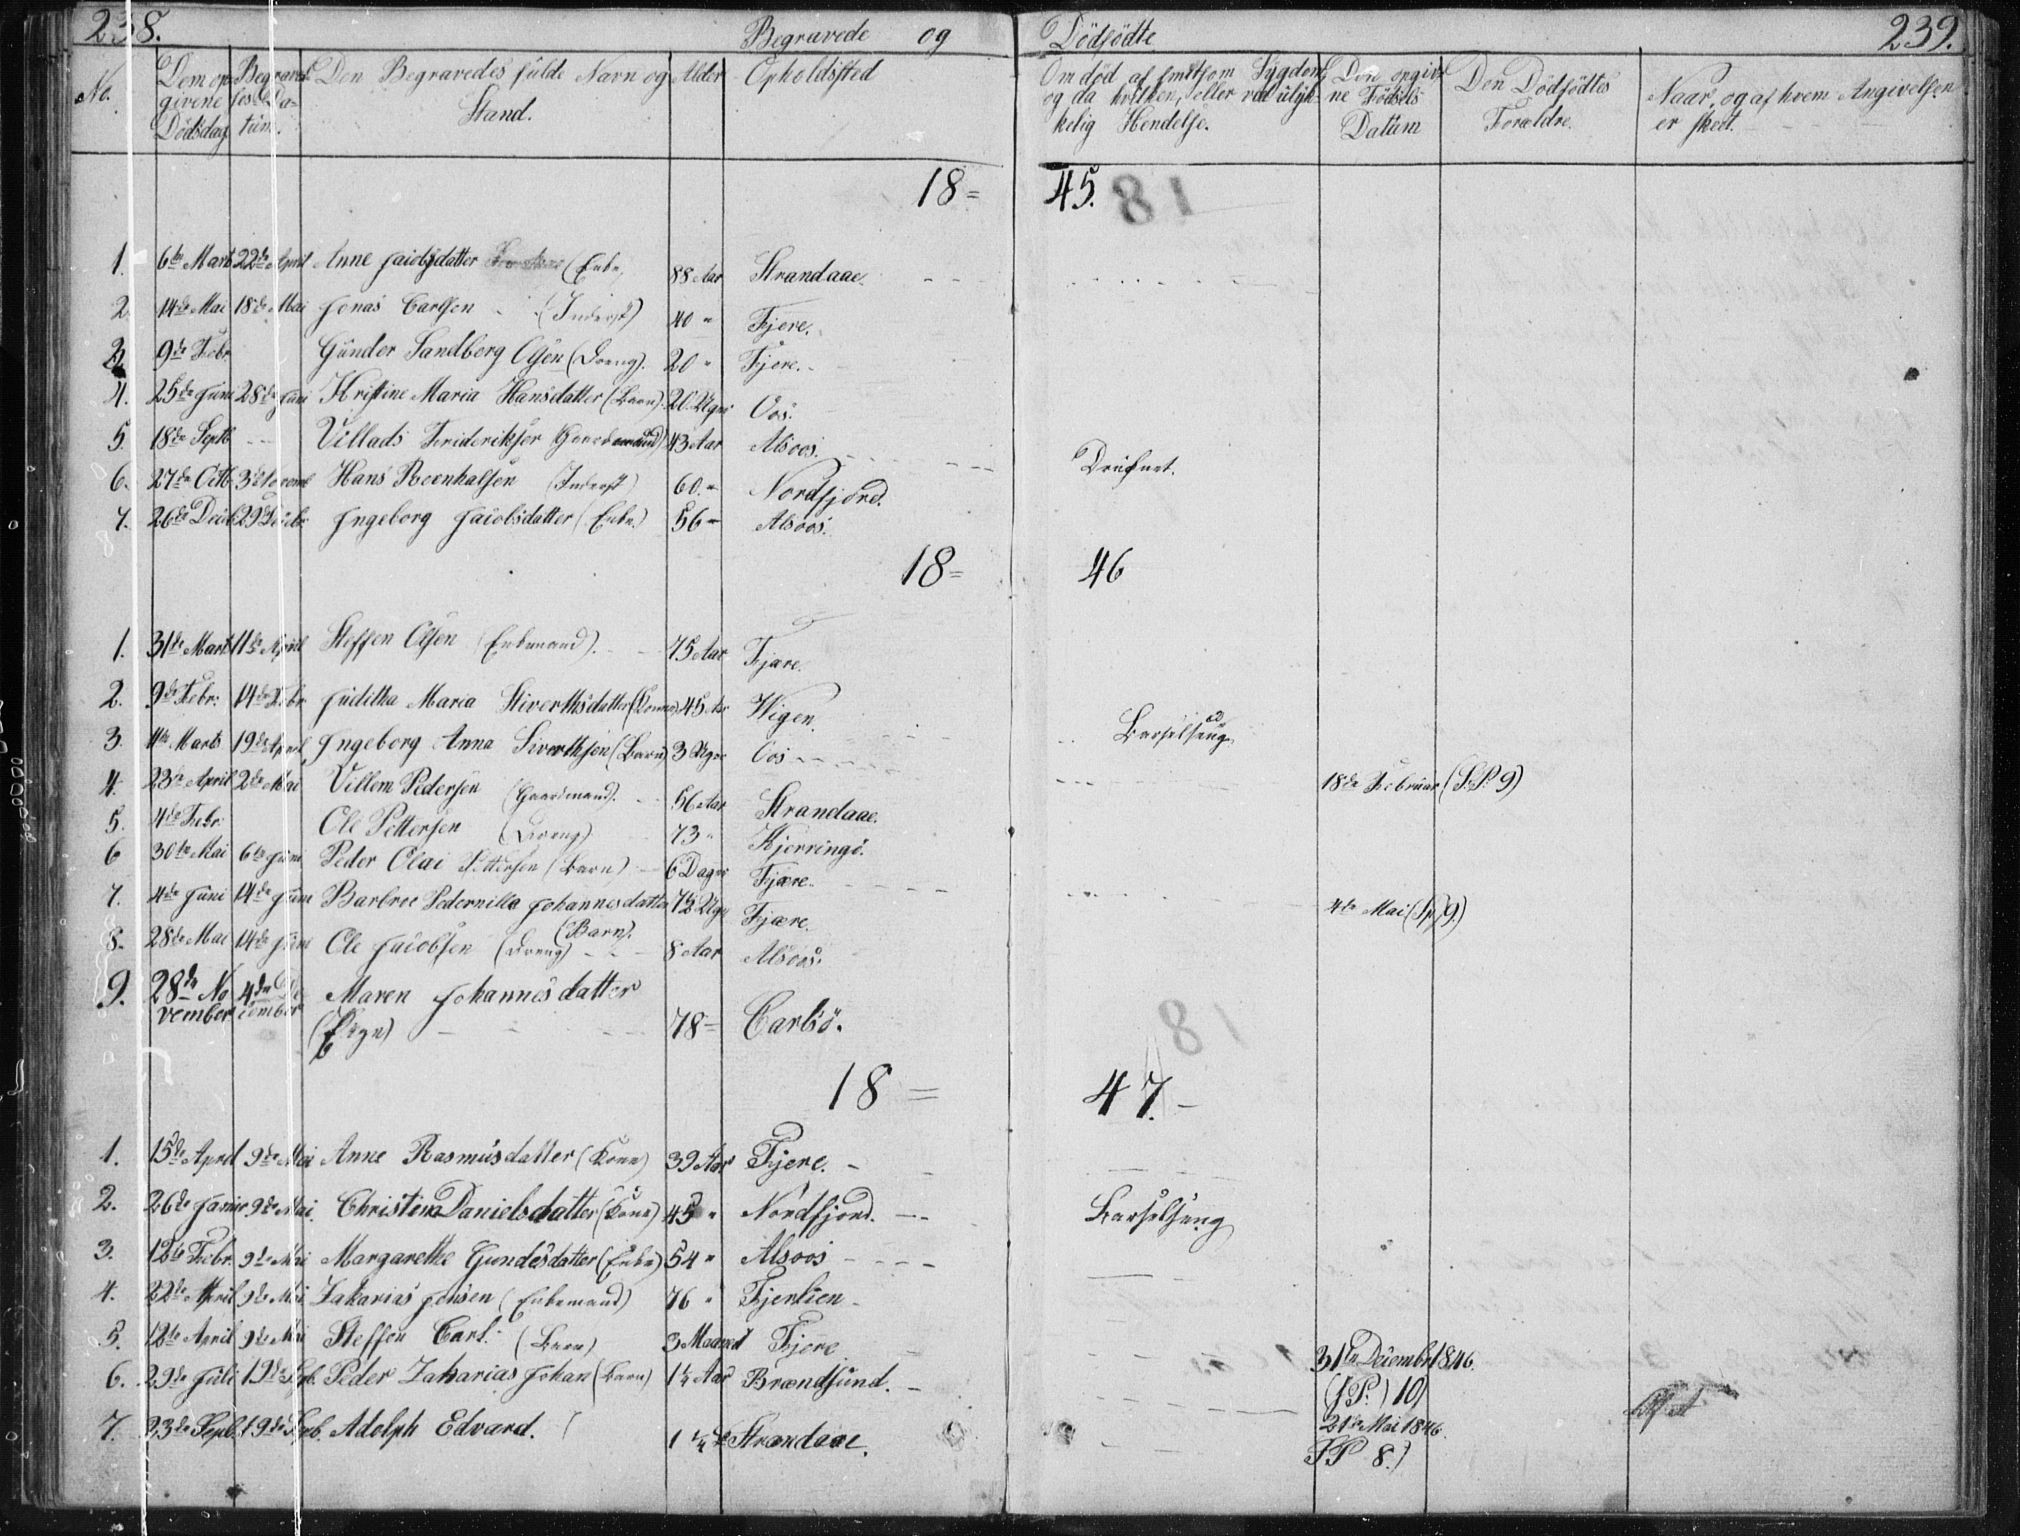 238. Begravede og Dödfödte 239.
No. Dem opgivne Dödsdag Begravelses Datum. Den Begravedes fulde Navn og Stand. Alder Opholdsted Om död af smitsom Sygdom, og da hvilken, eller ved ulykkelig Hendelse. Den opgivne Födsels Datum Den Dödfödtes Forældre. Naar, og af hvem Angivelsen er skeet.
18= 45. 18
1. 6te Marts 22de April Anne Jacobsdatter (Enke) 88 Aar Strandaae.
2. 14de Mai 18de Mai Jonas Carlsen (Inderst) 40 " Fjere.
3. 9de Febr. Gunder Sandberg Olsen (Dreng). 20 " Fjere.
4. 25de Juni 28de Juni Kristine Maria Hansdatter (Barn). 20 Uger Oos.
5. 18de Septb. Villads Frideriksen Gaardmand) 43 Aar Alsoos.
6. 27de Octb. 3de Novemb Hans Roenhalsen (Inderst) 60 " Nordfjord. Druknet.
7. 26de Decb. 29de Decbr. Ingeborg Jacobsdatter (Enke.) 56 " Alsoos.
18= 46
1. 31de Marts 11de April Steffen Olsen (Enkemand). 75 Aar Fjære.
2. 9de Febr. 14de Febr. Juditha Maria Siverthsdatter (Konne) 45 Aar Wigen.
3. 4de Marts 19de April Ingeborg Anna Siverthsen (Barn) 3 Uger Oos Barselseng
4. 23de April 2de Mai Villem Pedersen (Gaardmand). 56 Aar Strandaae. 18de Februar (S.P. 9)
5. 4de Febr. Ole Pettersen (Dreng) 73 " Kjerringö.
6 30te Mai 6te Juni Peder Olai Pettersen (Barn) 6 Dage Fjære.
7. 4de Juni 14de Juni Barbroe Pedernille Johannesdatter 7½ Uge Fjære. 4de Mai (Sp. 9.)
(Barn).
8. 28de Mai 14de Juni Ole Jacobsen (Dreng) 8 Aar Alsoos.
9. 28de November 4de December Maren Johannesdatter
(Pige) 78 = Carlsö.
18
18 = 47.
1. 15de April 9de Mai Anne Rasmusdatter (Kone) 39 Aar Fjere.
2. 26de Januar 9de Mai. Christina Danielsdatter (Kone) 45 " Nordfjord. Barselseng
3. 12te Febr. 9de Mai Margarethe Gundesdatter (Enke) 54 " Alsoos
4. 22de April 9de Mai Zakarias Jonsen (Enkemand) 76 " Fjerlien
5. 12te April 9de Mai Steffen Carl. (Barn) 3 Maaned Fjere 31te Decembr 1846.
6. 29de Juli 19de Spb. Peder Zakarias Johan (Barn) 1¼ Aar Brændsund. (S.P.) 10)
7. 23de Septb. 19de Spb. Adolph Edvard. 1 ¼ Strandaae. 21de Mai 1846.
S P 8.)